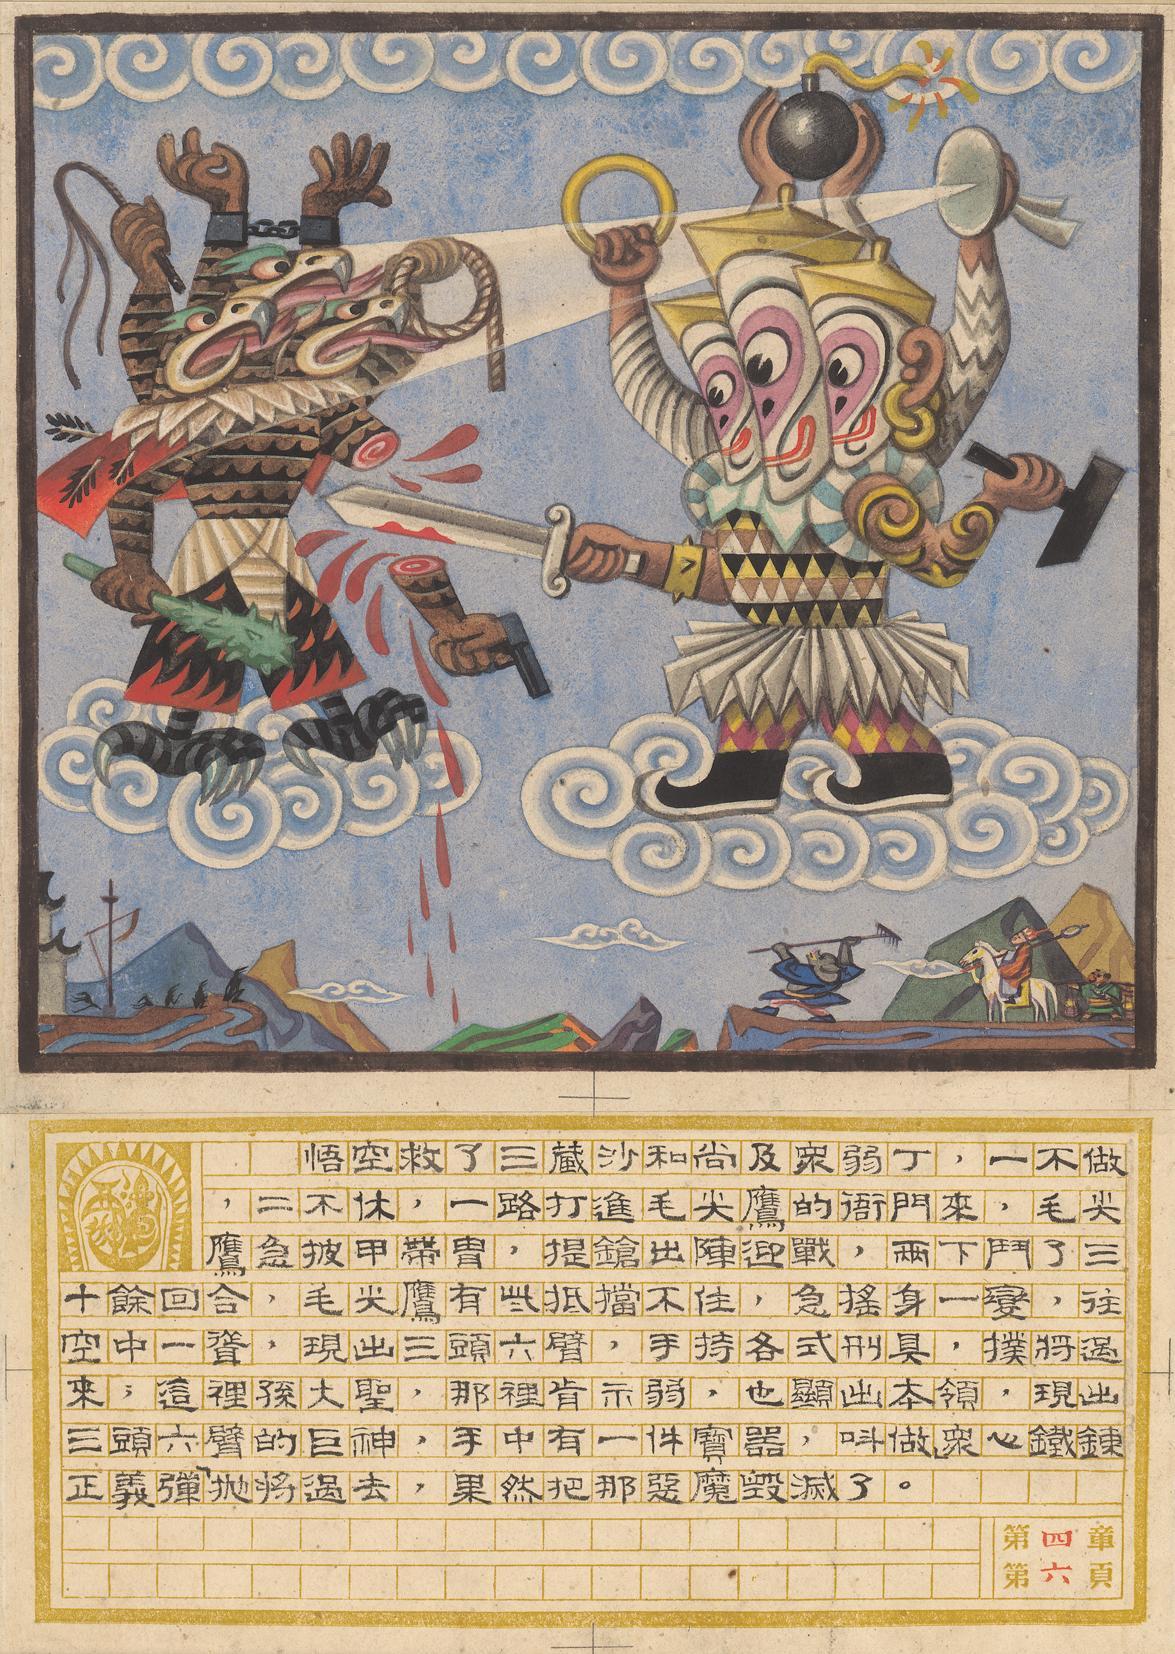 悟空救了三藏沙和尚及眾弱丁，一不做
，二不休，一路打進毛尖鷹的衙門來，毛尖
鷹急披甲帶冑，提鎗出陣迎戰，兩下鬥了三
十餘回合，毛尖鷹有些抵擋不住，急搖身一變，往
空中一聳，現出三頭六臂，手持各式刑具，撲將過
來；這裡孫大聖，那裡肯示弱，也顯出本領，現出
三頭六臂的巨神，手中有一件寶器，叫做「眾心鐵鍊
正義彈」拋將過去，果然把那惡魔毀滅了。
第四章
第六頁